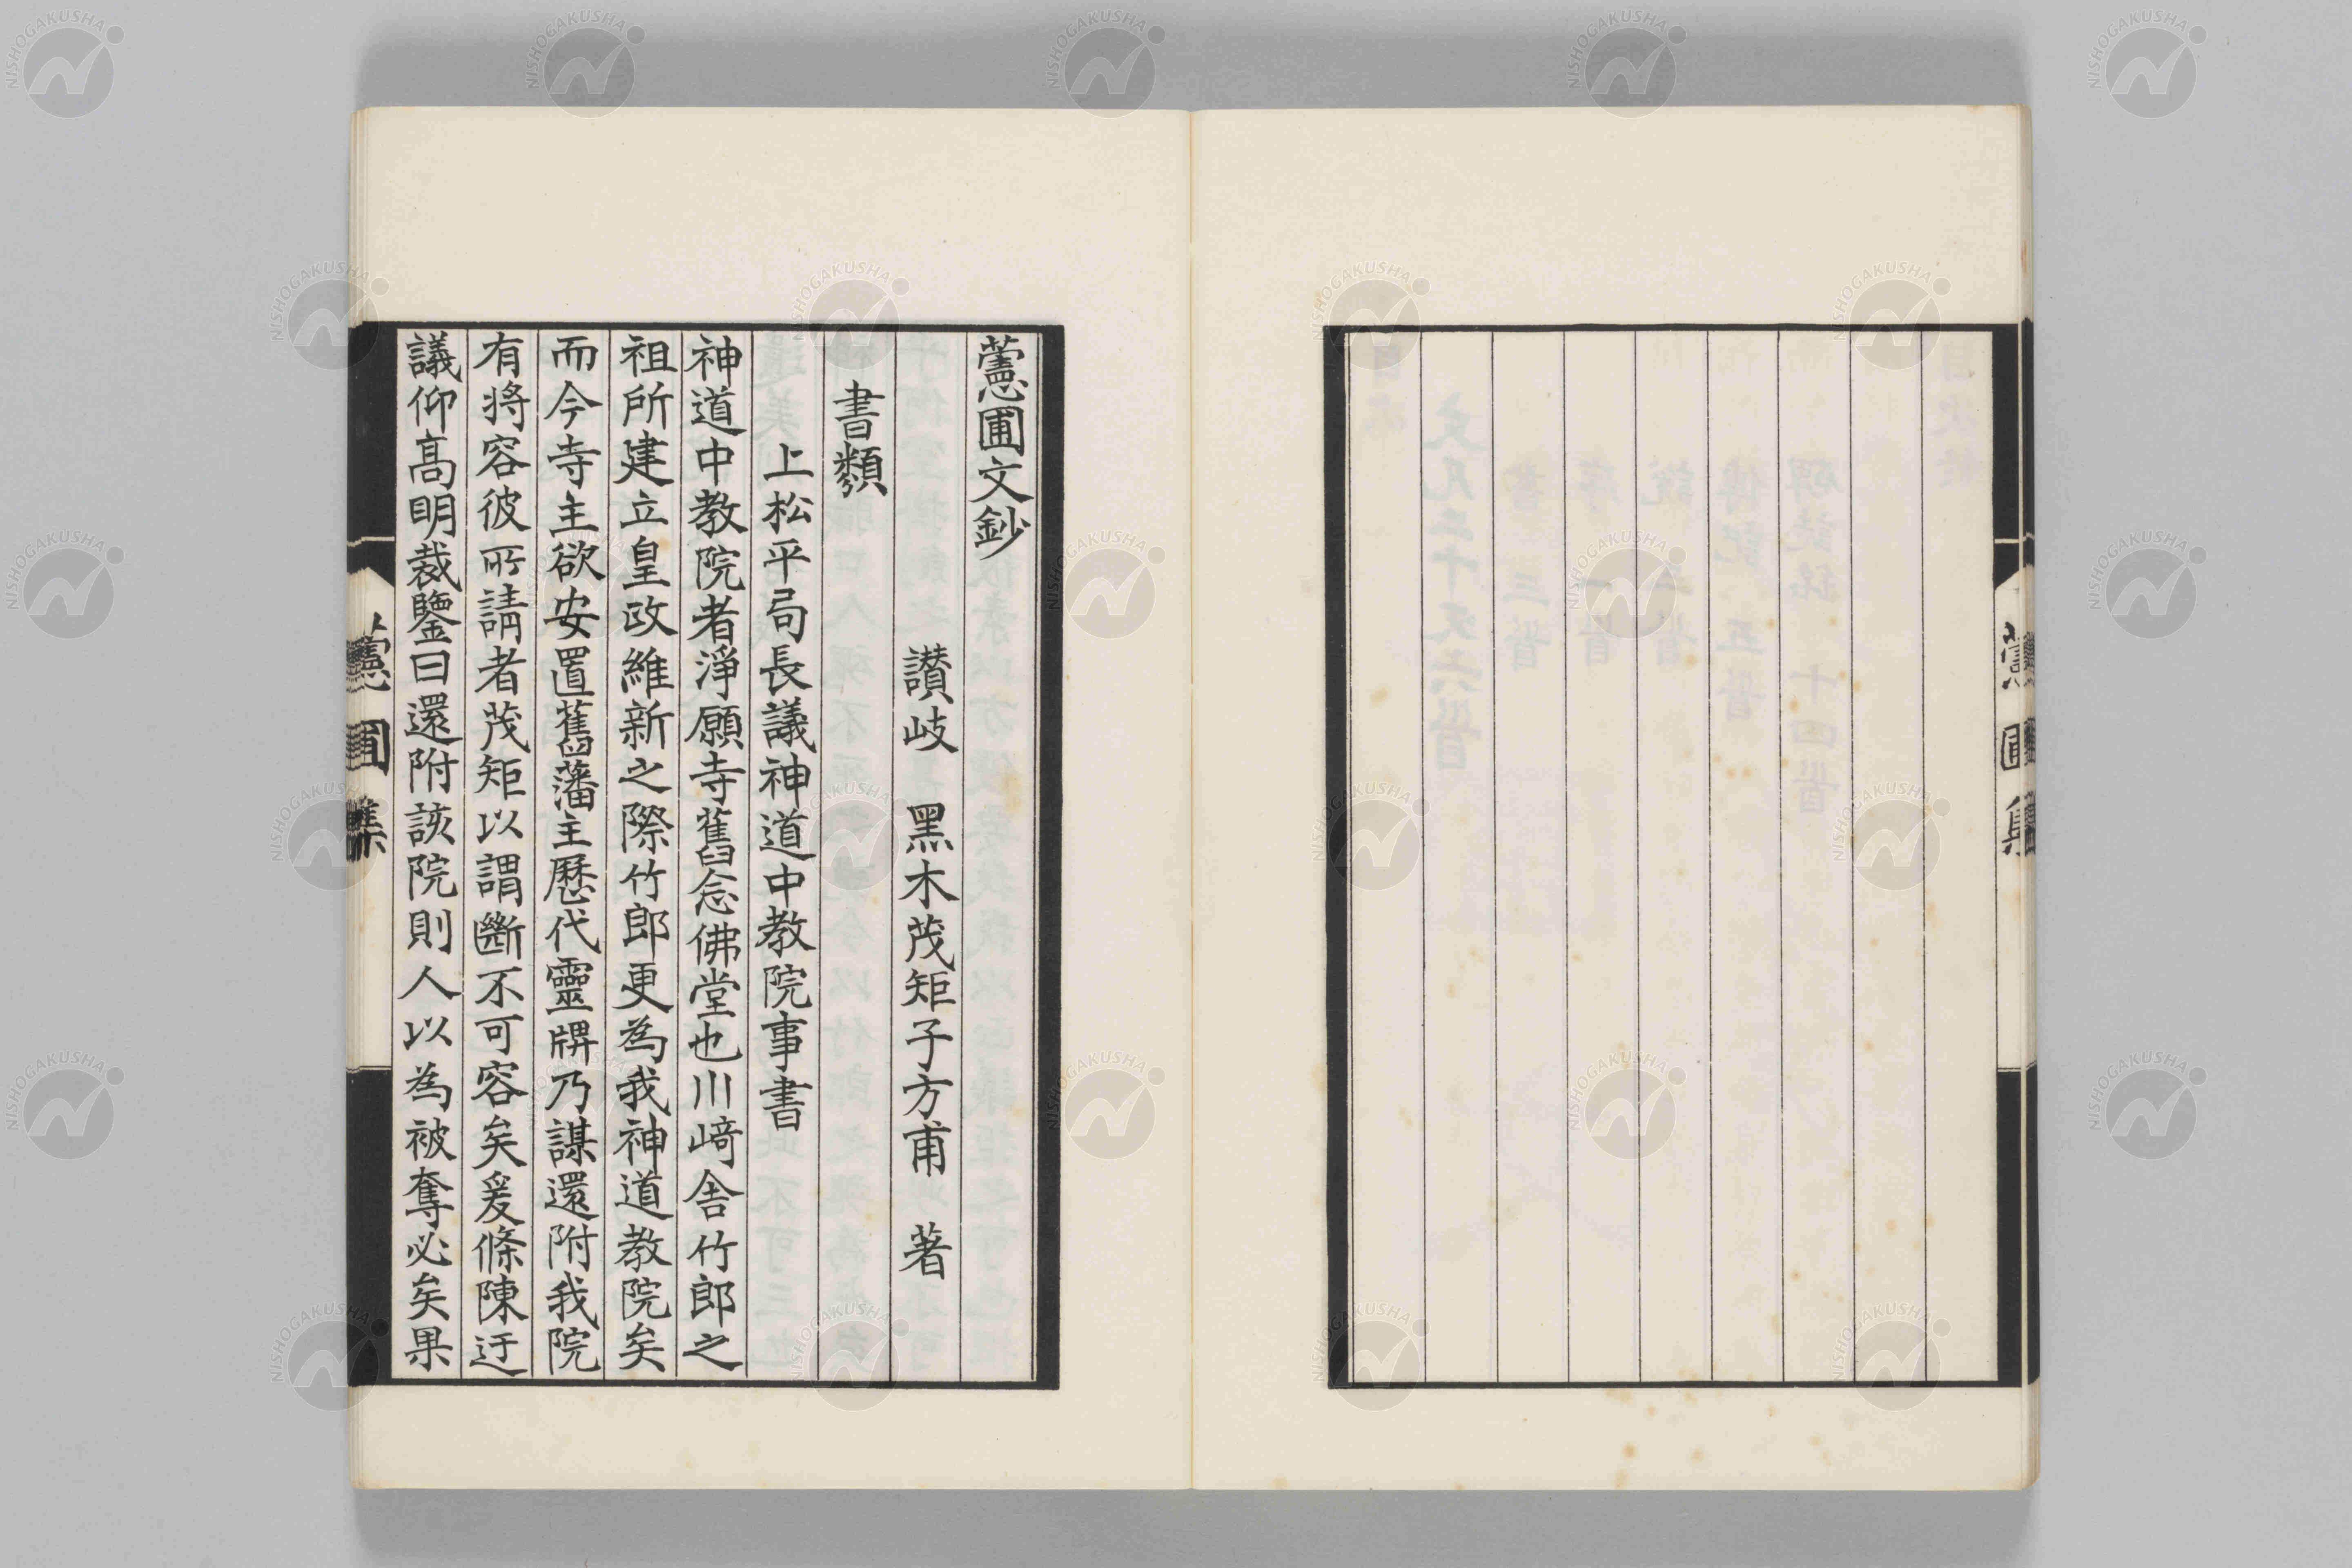 藼圃文鈔
讃岐　黑木茂矩子方甫　著
書類
上松平局長議神道中教院事書
神道中教院者淨願寺舊念佛堂也川﨑舎竹郎之
祖所建立皇政維新之際竹郎更為我神道教院矣
而今寺主欲安置舊藩主歷代靈牌乃謀還附我院
有將容彼所請者茂矩以謂斷不可容矣爰條陳迂
議仰高明裁鑒曰還附該院則人以為被奪必矣果
藼圃集
NISHOGAKUSHA